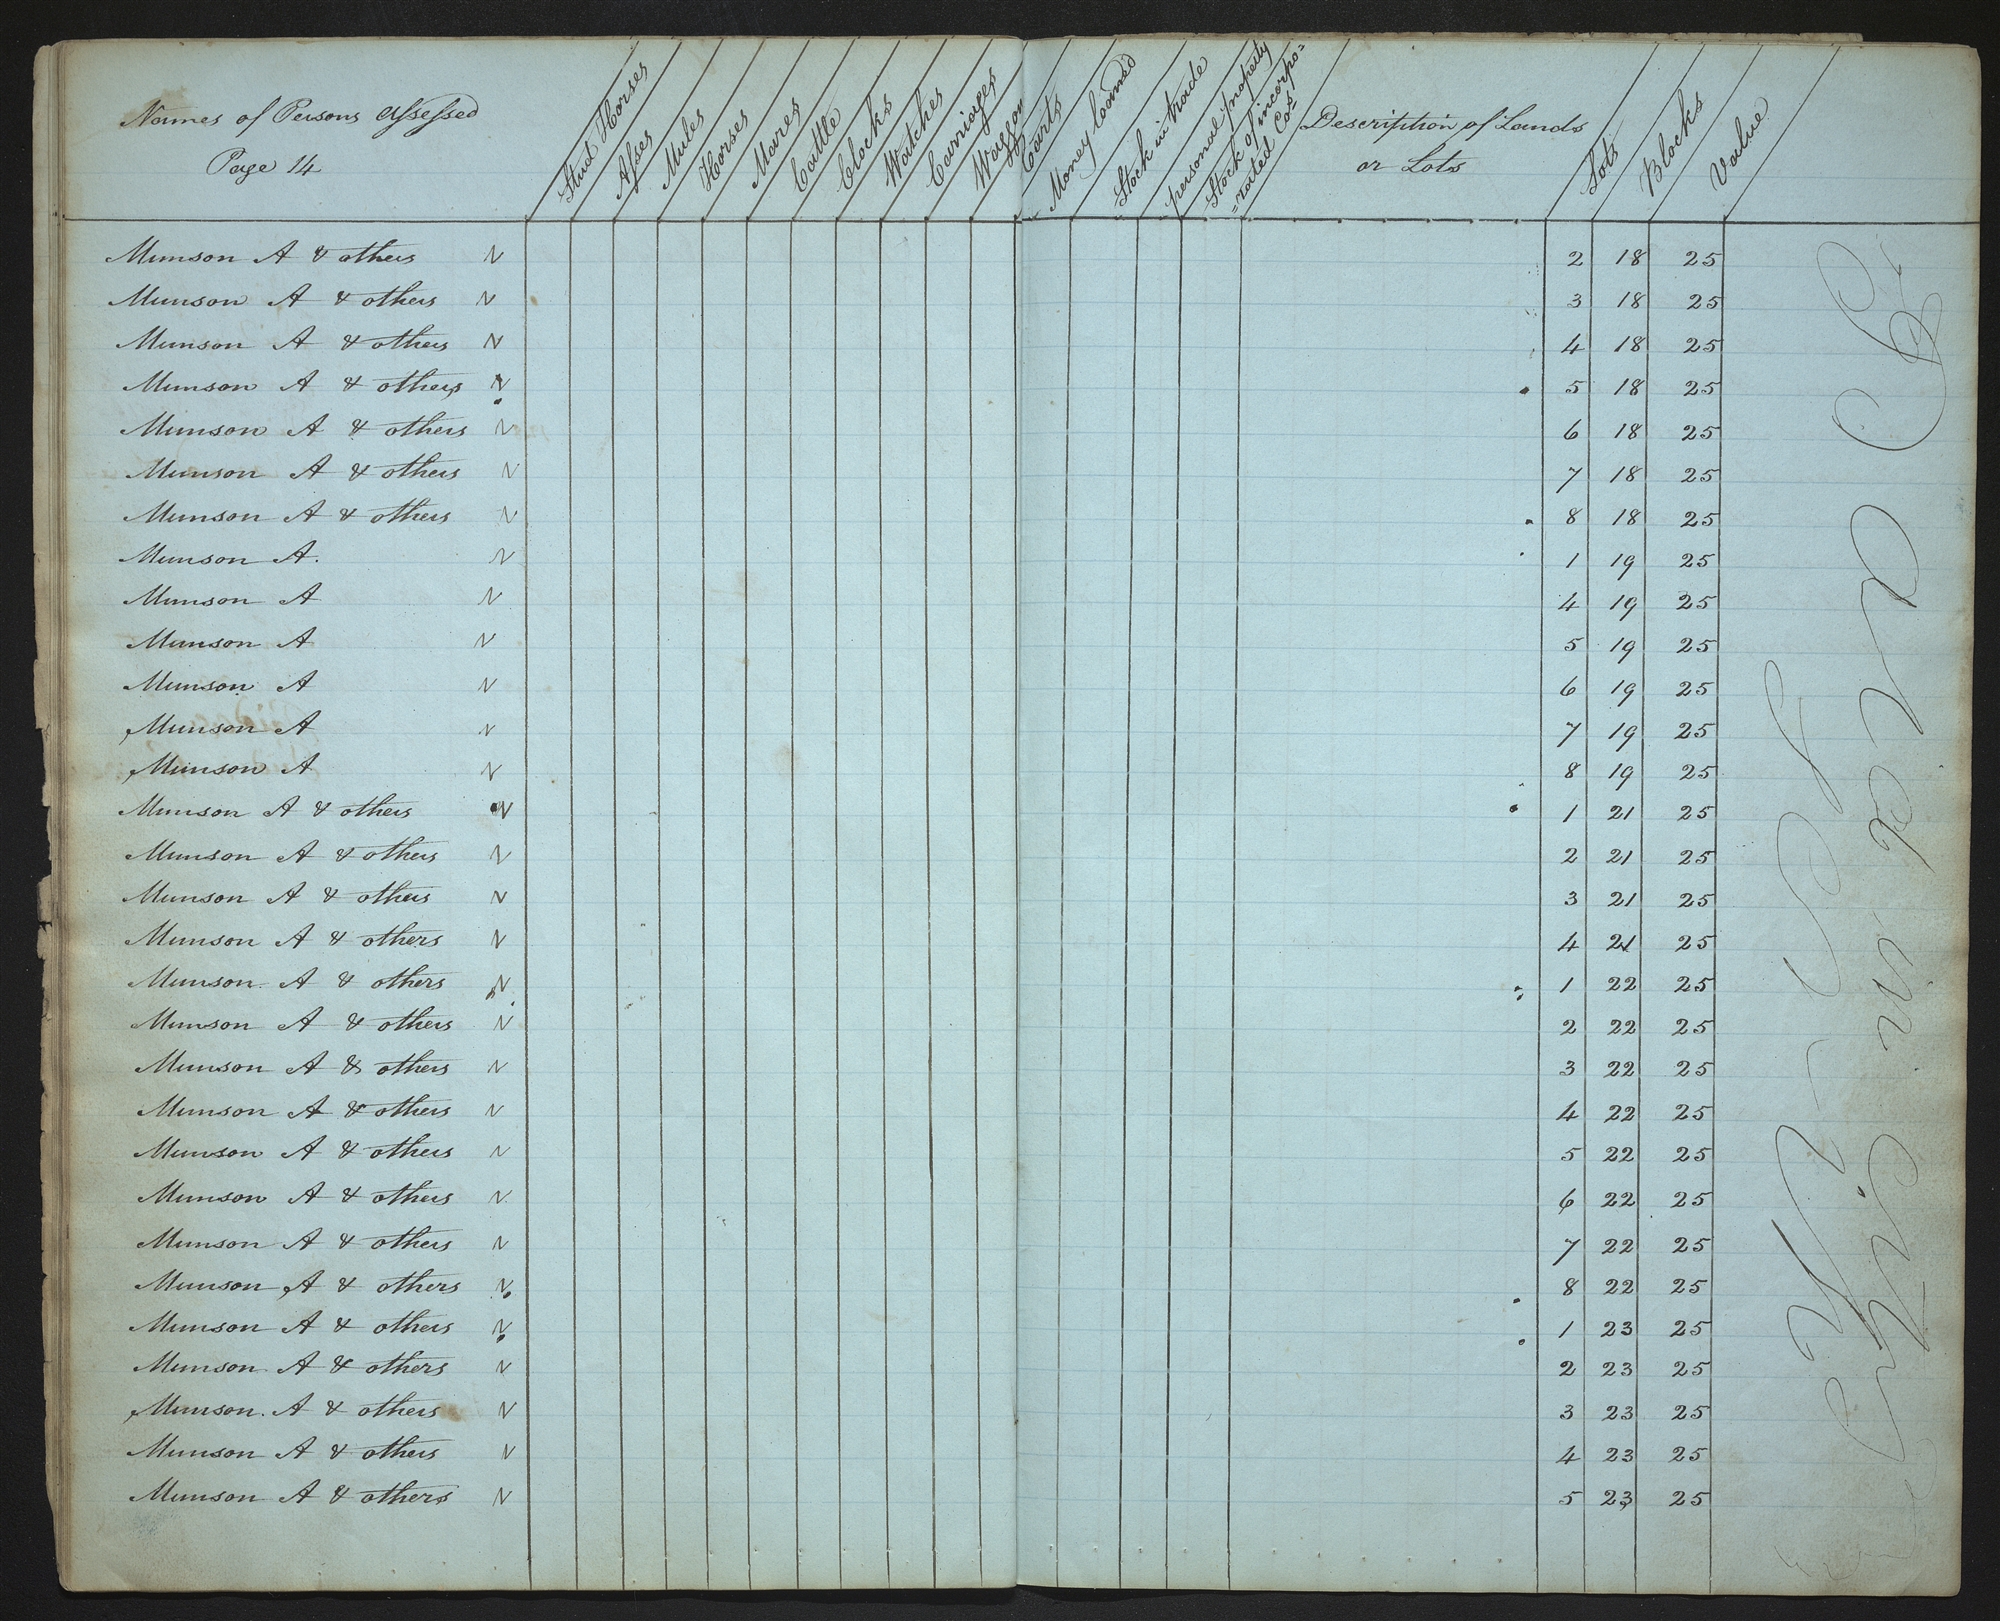 Names of Persons Assessed
Page 14
Stud Horses
Asses
Mules
Horses
Mares
Cattle
Clocks
Watches
Carriages
Waggon
Carts
Money loaned
Stock in trade
personal property
Stock of incorpo=
=rated Cos
Description of Lands
or Lots
Lots
Blocks
Value
Munson A & others N 2 18 25
Munson A & others N 3 18 25
Munson A & others N 4 18 25
Munson A & others N 5 18 25
Munson A & others N 6 18 25
Munson A & others N 7 18 25
Munson A & others N 8 18 25
Munson A. N 1 19 25
Munson A N 4 19 25
Munson A N 5 19 25
Munson A N 6 19 25
Munson A N 7 19 25
Munson A N 8 19 25
Munson A & others N 1 21 25
Munson A & others N 2 21 25
Munson A & others N 3 21 25
Munson A & others N 4 21 25
Munson A & others N 1 22 25
Munson A & others N 2 22 25
Munson A & others N 3 22 25
Munson A & others N 4 22 25
Munson A & others N 5 22 25
Munson A & others N 6 22 25
Munson A & others N 7 22 25
Munson A & others N 8 22 25
Munson A & others N 1 23 25
Munson A & others N 2 23 25
Munson A & others N 3 23 25
Munson A & others N 4 23 25
Munson A & others N 5 23 25